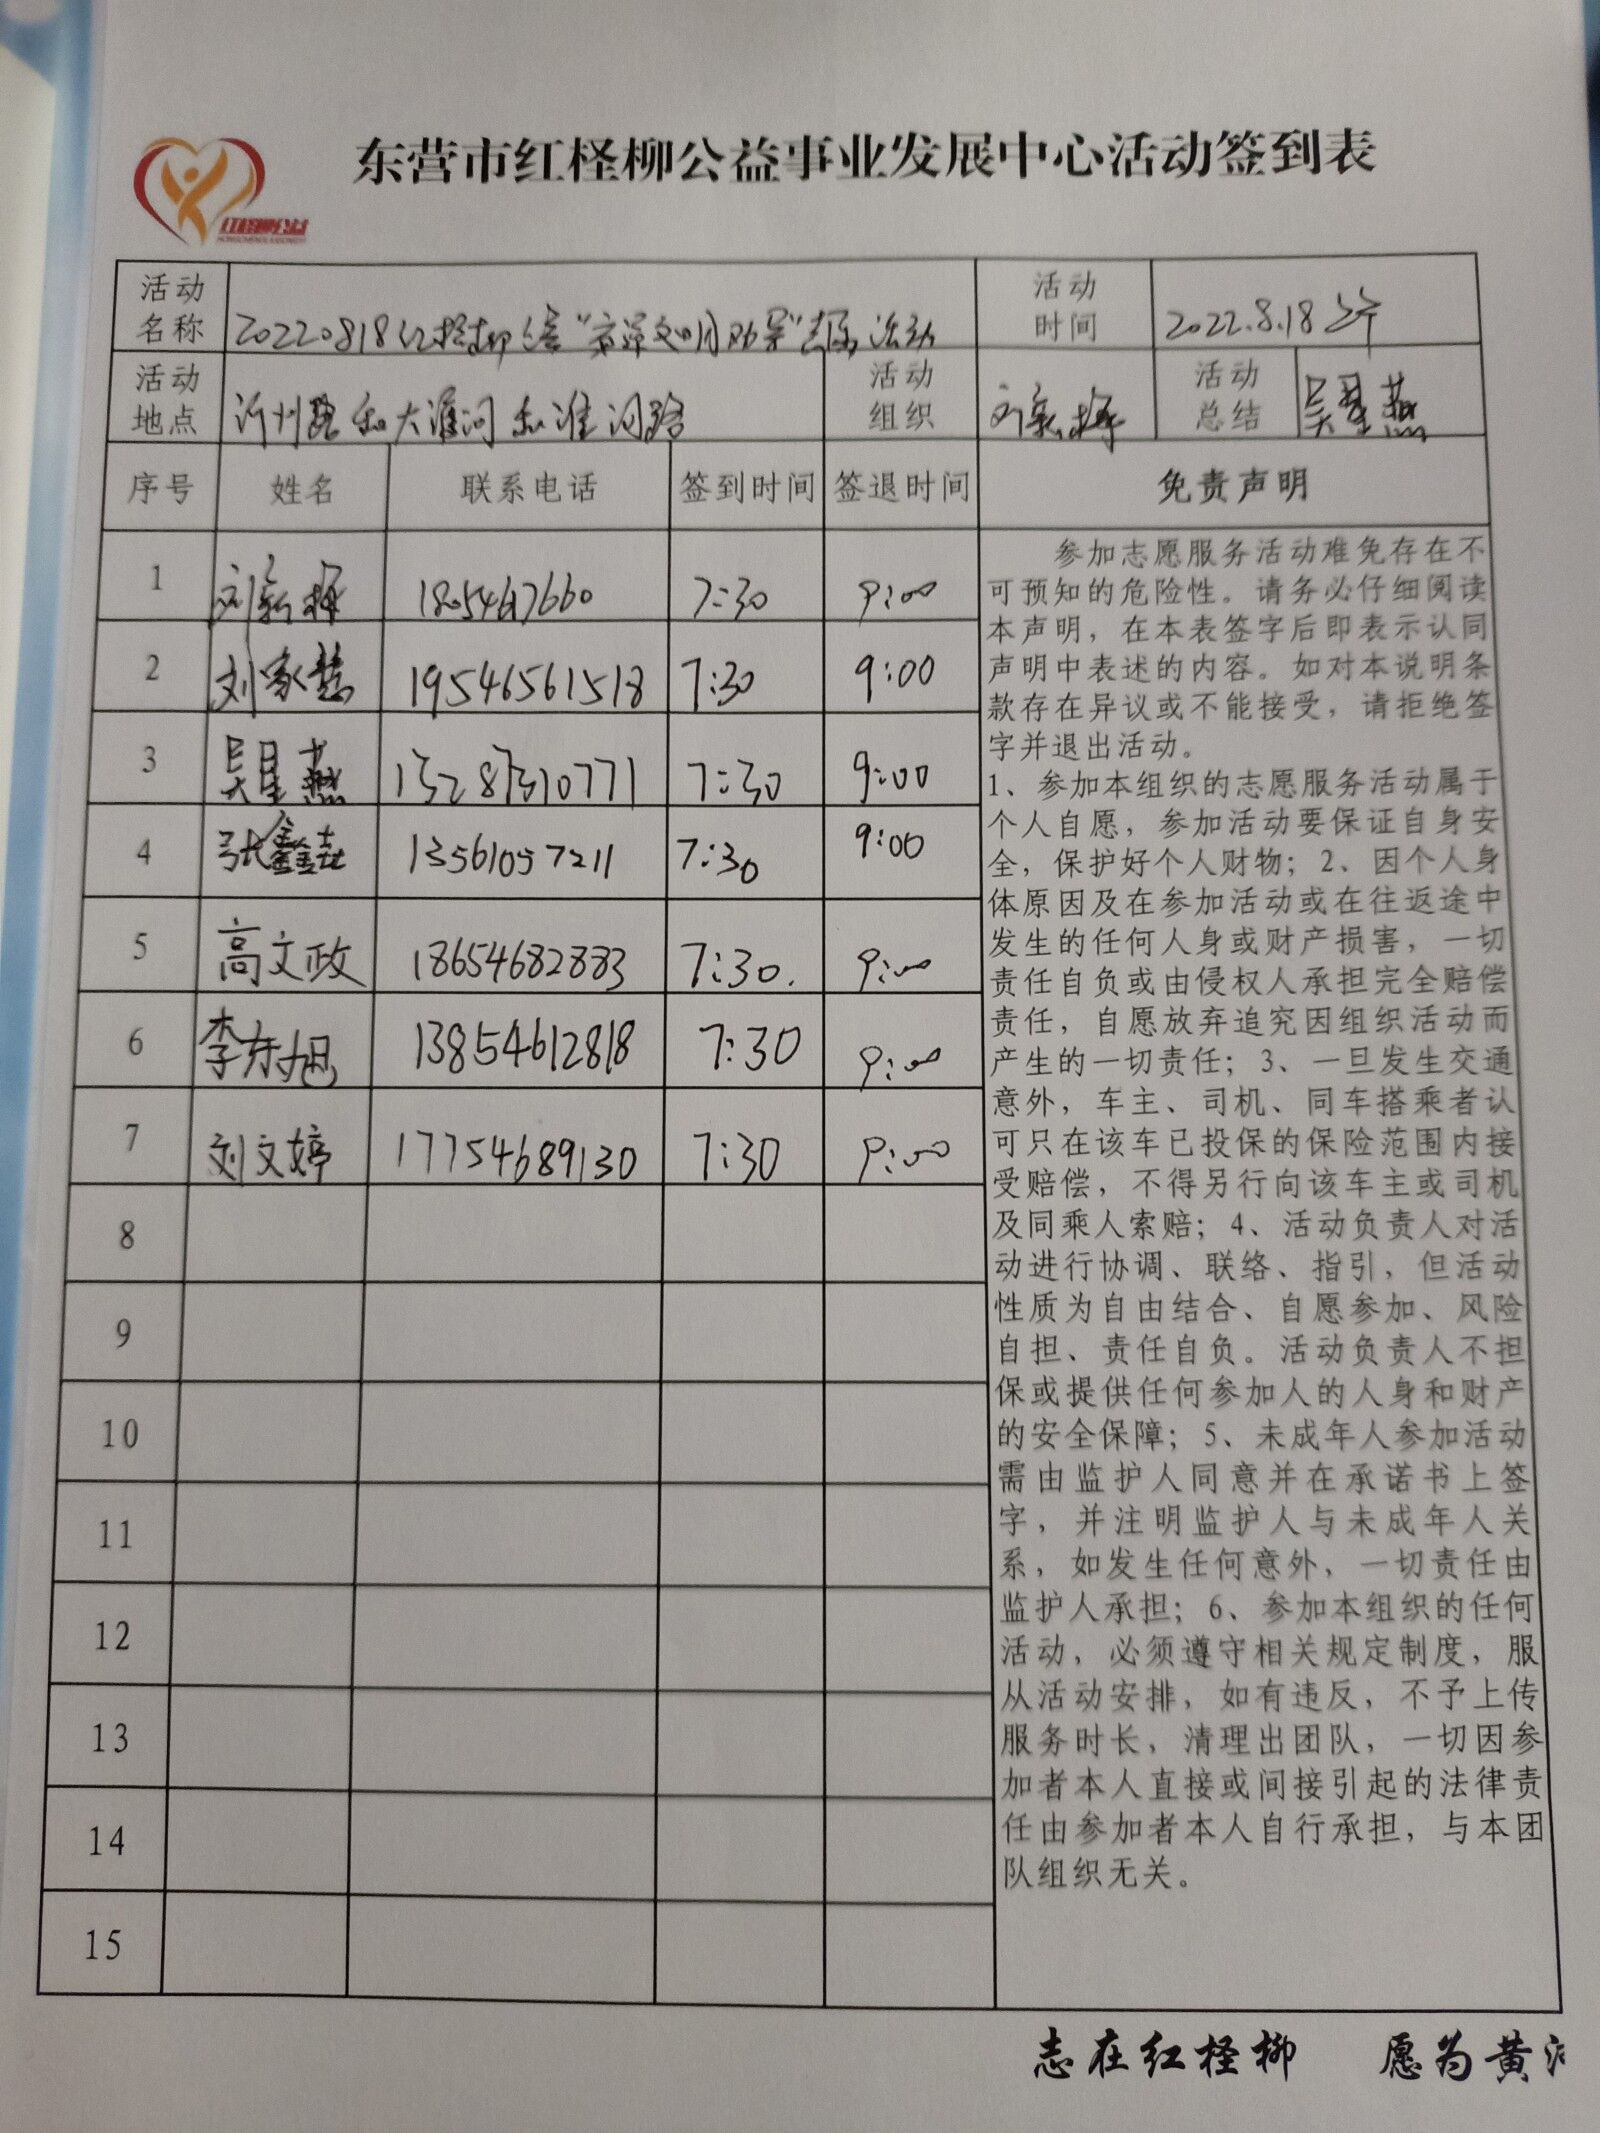 东营市红柽柳公益事业发展中心活动签到表
红柽柳公益
活动名称 20220818红柽柳公益“ 文明 ”志愿活动 活动时间 2022.8.18上午
活动地点 沂州路和大淮河和淮河路 活动组织 刘新梅 活动总结 吴星燕
序号 姓名 联系电话 签到时间 签退时间 免责声明
1 刘新梅 7:30 9:00
2 刘家慧 19546561518 7:30 9:00
3 吴星燕 7:30 9:00
4 张鑫垚 13561057211 7:30 9:00
5 高文政 18654682883 7:30. 9:00
6 李东旭 13854612818 7:30 9:00
7 刘文婷 17754689130 7:30 9:00
8
9
10
11
12
13
14
15
参加志愿服务活动难免存在不
可预知的危险性。请务必仔细阅读
本声明，在本表签字后即表示认同
声明中表述的内容。如对本说明条
款存在异议或不能接受，请拒绝签
字并退出活动。
1、参加本组织的志愿服务活动属于
个人自愿，参加活动要保证自身安
全，保护好个人财物；2、因个人身
体原因及在参加活动或在往返途中
发生的任何人身或财产损害，一切
责任自负或由侵权人承担完全赔偿
责任，自愿放弃追究因组织活动而
产生的一切责任；3、一旦发生交通
意外，车主、司机、同车搭乘者认
可只在该车已投保的保险范围内接
受赔偿，不得另行向该车主或司机
及同乘人索赔；4、活动负责人对活
动进行协调、联络、指引，但活动
性质为自由结合、自愿参加、风险
自担、责任自负。活动负责人不担
保或提供任何参加人的人身和财产
的安全保障；5、未成年人参加活动
需由监护人同意并在承诺书上签
字，并注明监护人与未成年人关
系，如发生任何意外，一切责任由
监护人承担；6、参加本组织的任何
活动，必须遵守相关规定制度，服
从活动安排，如有违反，不予上传
服务时长，清理出团队，一切因参
加者本人直接或间接引起的法律责
任由参加者本人自行承担，与本团
队组织无关。
志在红柽柳 愿为黄